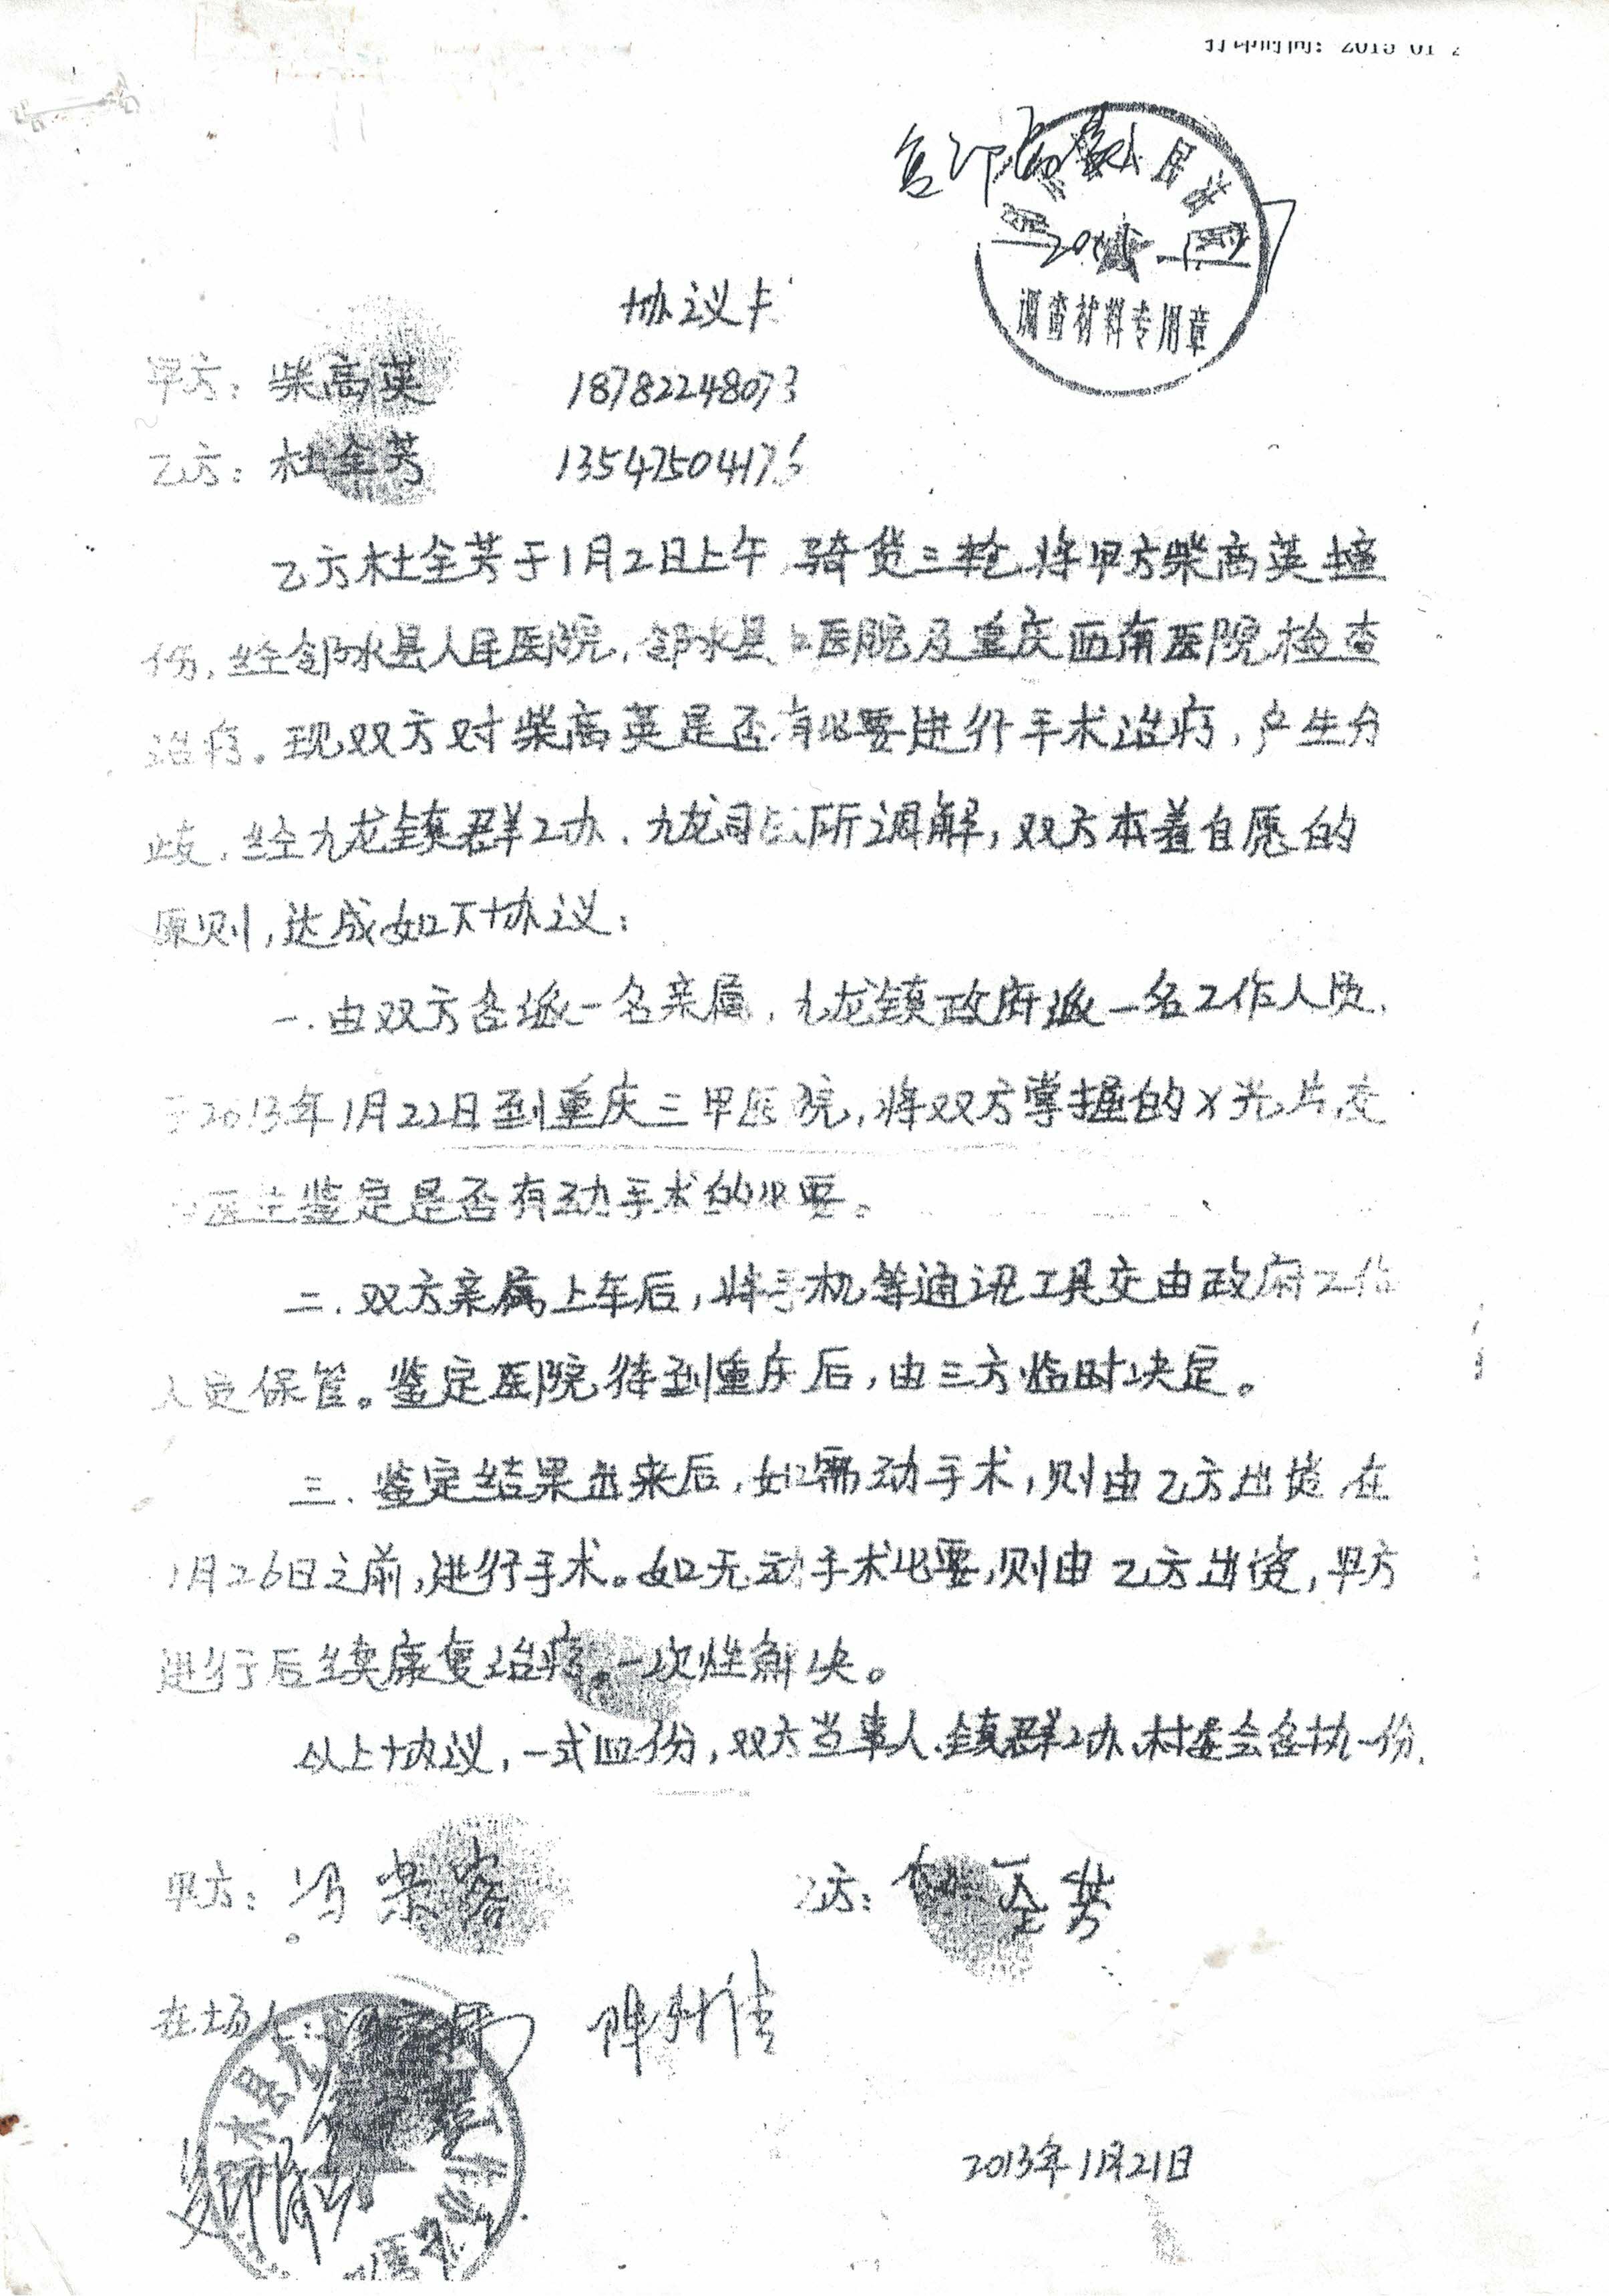 打印时间：2013 01 2
协议卡
甲方：柴高英 18782248073
乙方：杜全芳 13547504176
调查材料专用章
乙方杜全芳于1月2日上午，骑货三轮，将甲方柴高英撞
伤，经邻水县人民医院，邻水县中医院及重庆西南医院检查
治疗。现双方对柴高英是否有必要进行手术治疗，产生分
歧，经九龙镇群工办、九龙司法所调解，双方本着自愿的
原则，达成如下协议：
一．由双方各派一名亲属，九龙镇政府派一名工作人员，
于2013年1月22日到重庆三甲医院，将双方掌握的X光片交
由医生鉴定是否有动手术的必要。
二．双方亲属上车后，将手机等通讯工具交由政府工作
人员保管。鉴定医院待到重庆后，由三方临时决定。
三．鉴定结果出来后，如需动手术，则由乙方出钱在
1月26日之前，进行手术。如无动手术必要，则由乙方出资，甲方
进行后续康复治疗。一次性解决。
以上协议，一式四份，双方当事人、镇群工办、村委会各执一份．
甲方：冯荣容 乙方：杜全芳
在场人：
2013年1月21日